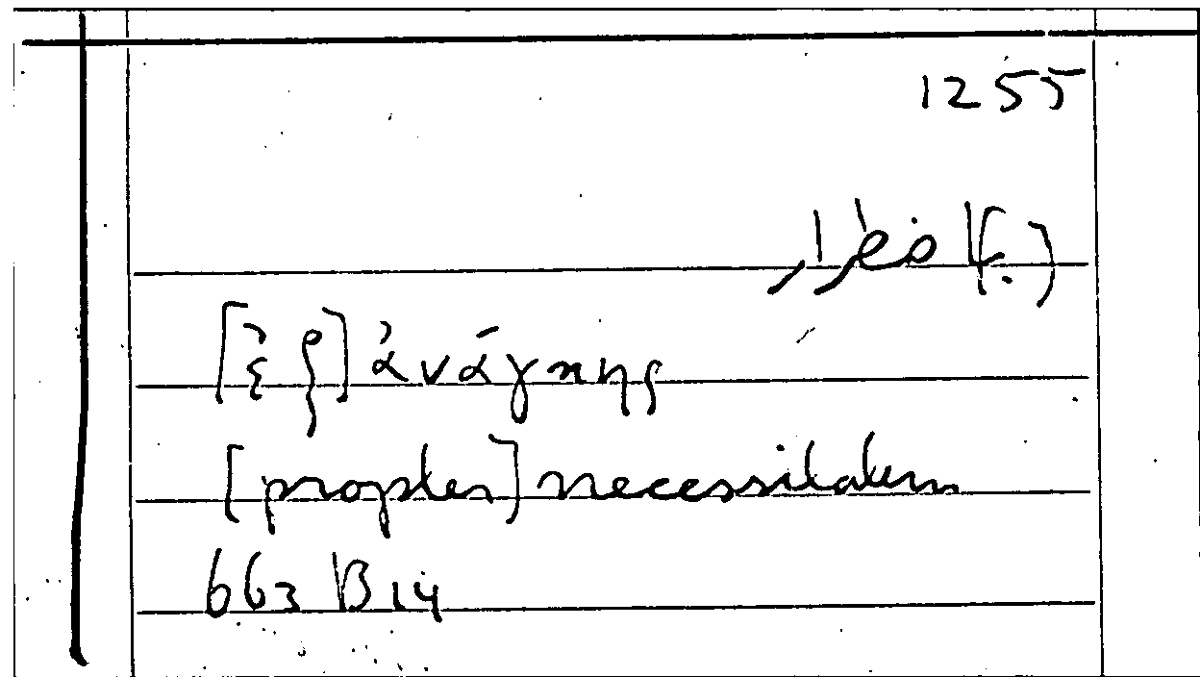 1255
(بـ)اضطرار
[ἐξ] ἀνάγκης
[propter] necessitatem
663 B 14